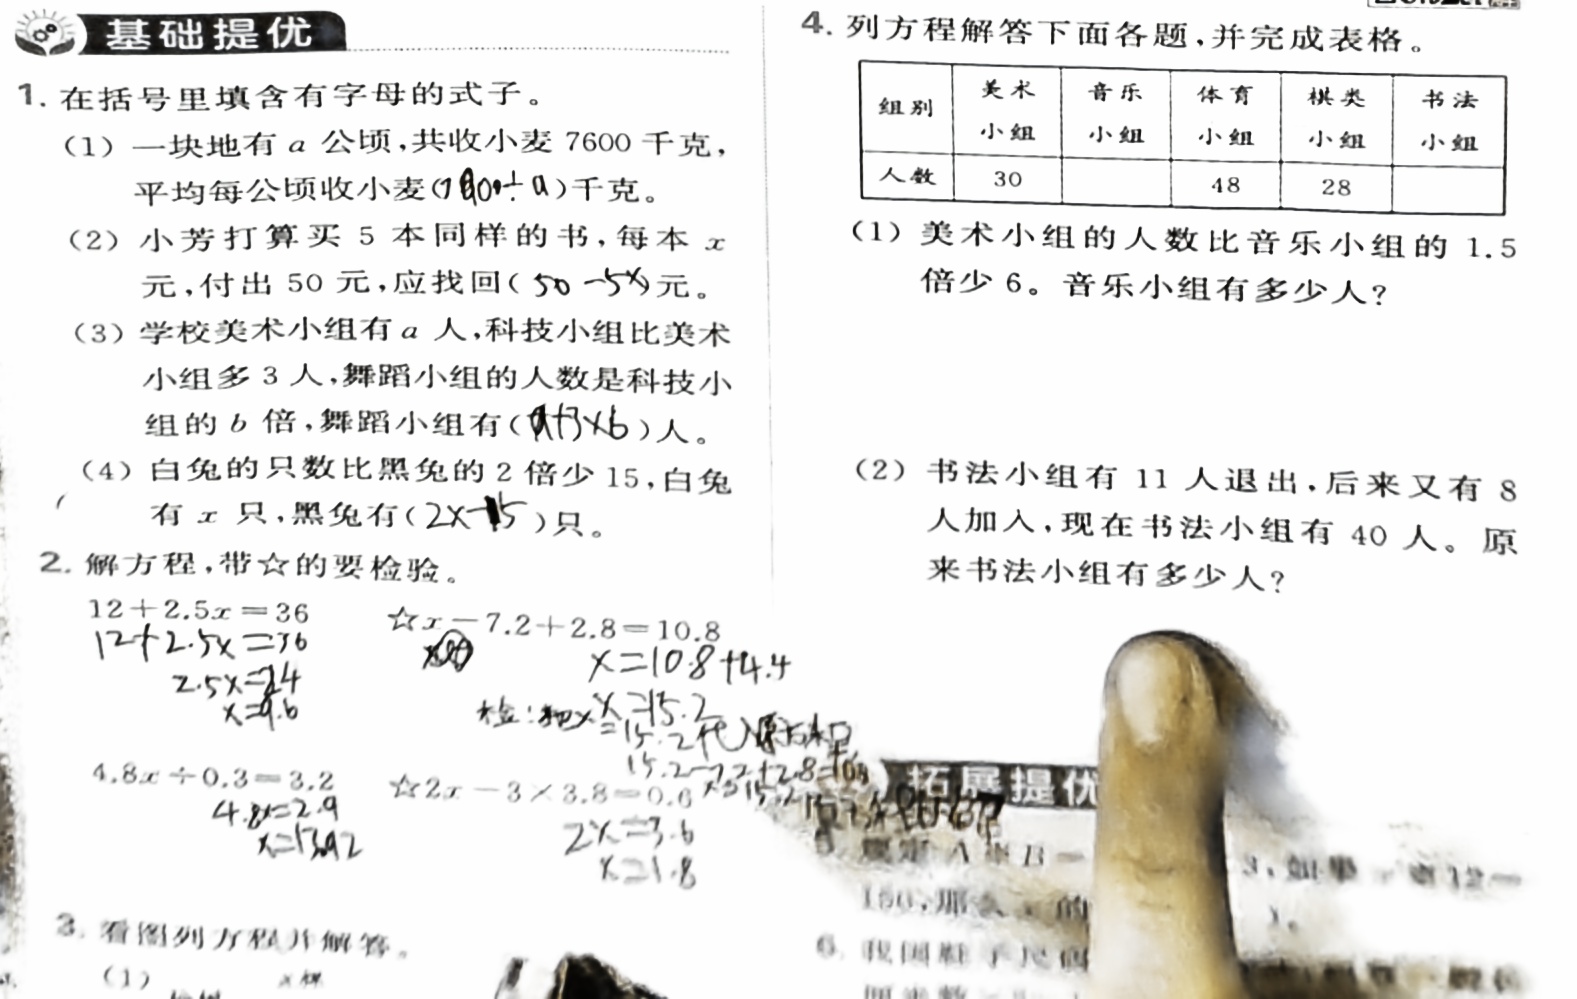 基础提优
1. 在括号里填含有字母的式子。
(1) 一块地有 a 公顷,共收小麦 7600 千克,
平均每公顷收小麦(7600÷a)千克。
(2) 小芳打算买 5 本同样的书,每本 x
元,付出 50 元,应找回(50-5x)元。
(3) 学校美术小组有 a 人,科技小组比美术
小组多 3 人,舞蹈小组的人数是科技小
组的 b 倍,舞蹈小组有(a+3×b)人。
(4) 白兔的只数比黑兔的 2 倍少 15,白兔
有 x 只,黑兔有(2x-15)只。
2. 解方程,带☆的要检验。
12+2.5x=36
12+2.5x=36
2.5x=24
x=9.6
☆x-7.2+2.8=10.8
x=10.8+4.4
x=15.2
检:把x
=15.2代入
15.2-7.2+2.8=10.8
4.8x÷0.3=3.2
4.8x=2.9
☆2x-3×3.8=0.6
2x=3.6
x=1.8
3. 看图列方程并解答。
(1)
x 棵
4. 列方程解答下面各题,并完成表格。
组别 美术小组 音乐小组 体育小组 棋类小组 书法小组
人数 30 48 28
(1) 美术小组的人数比音乐小组的 1.5
倍少 6。音乐小组有多少人?
(2) 书法小组有 11 人退出,后来又有 8
人加入,现在书法小组有 40 人。原
来书法小组有多少人?
拓展提优
规定 A B=
3,如果 12=
150,那么 的 )。
6. 我国鞋子尺码